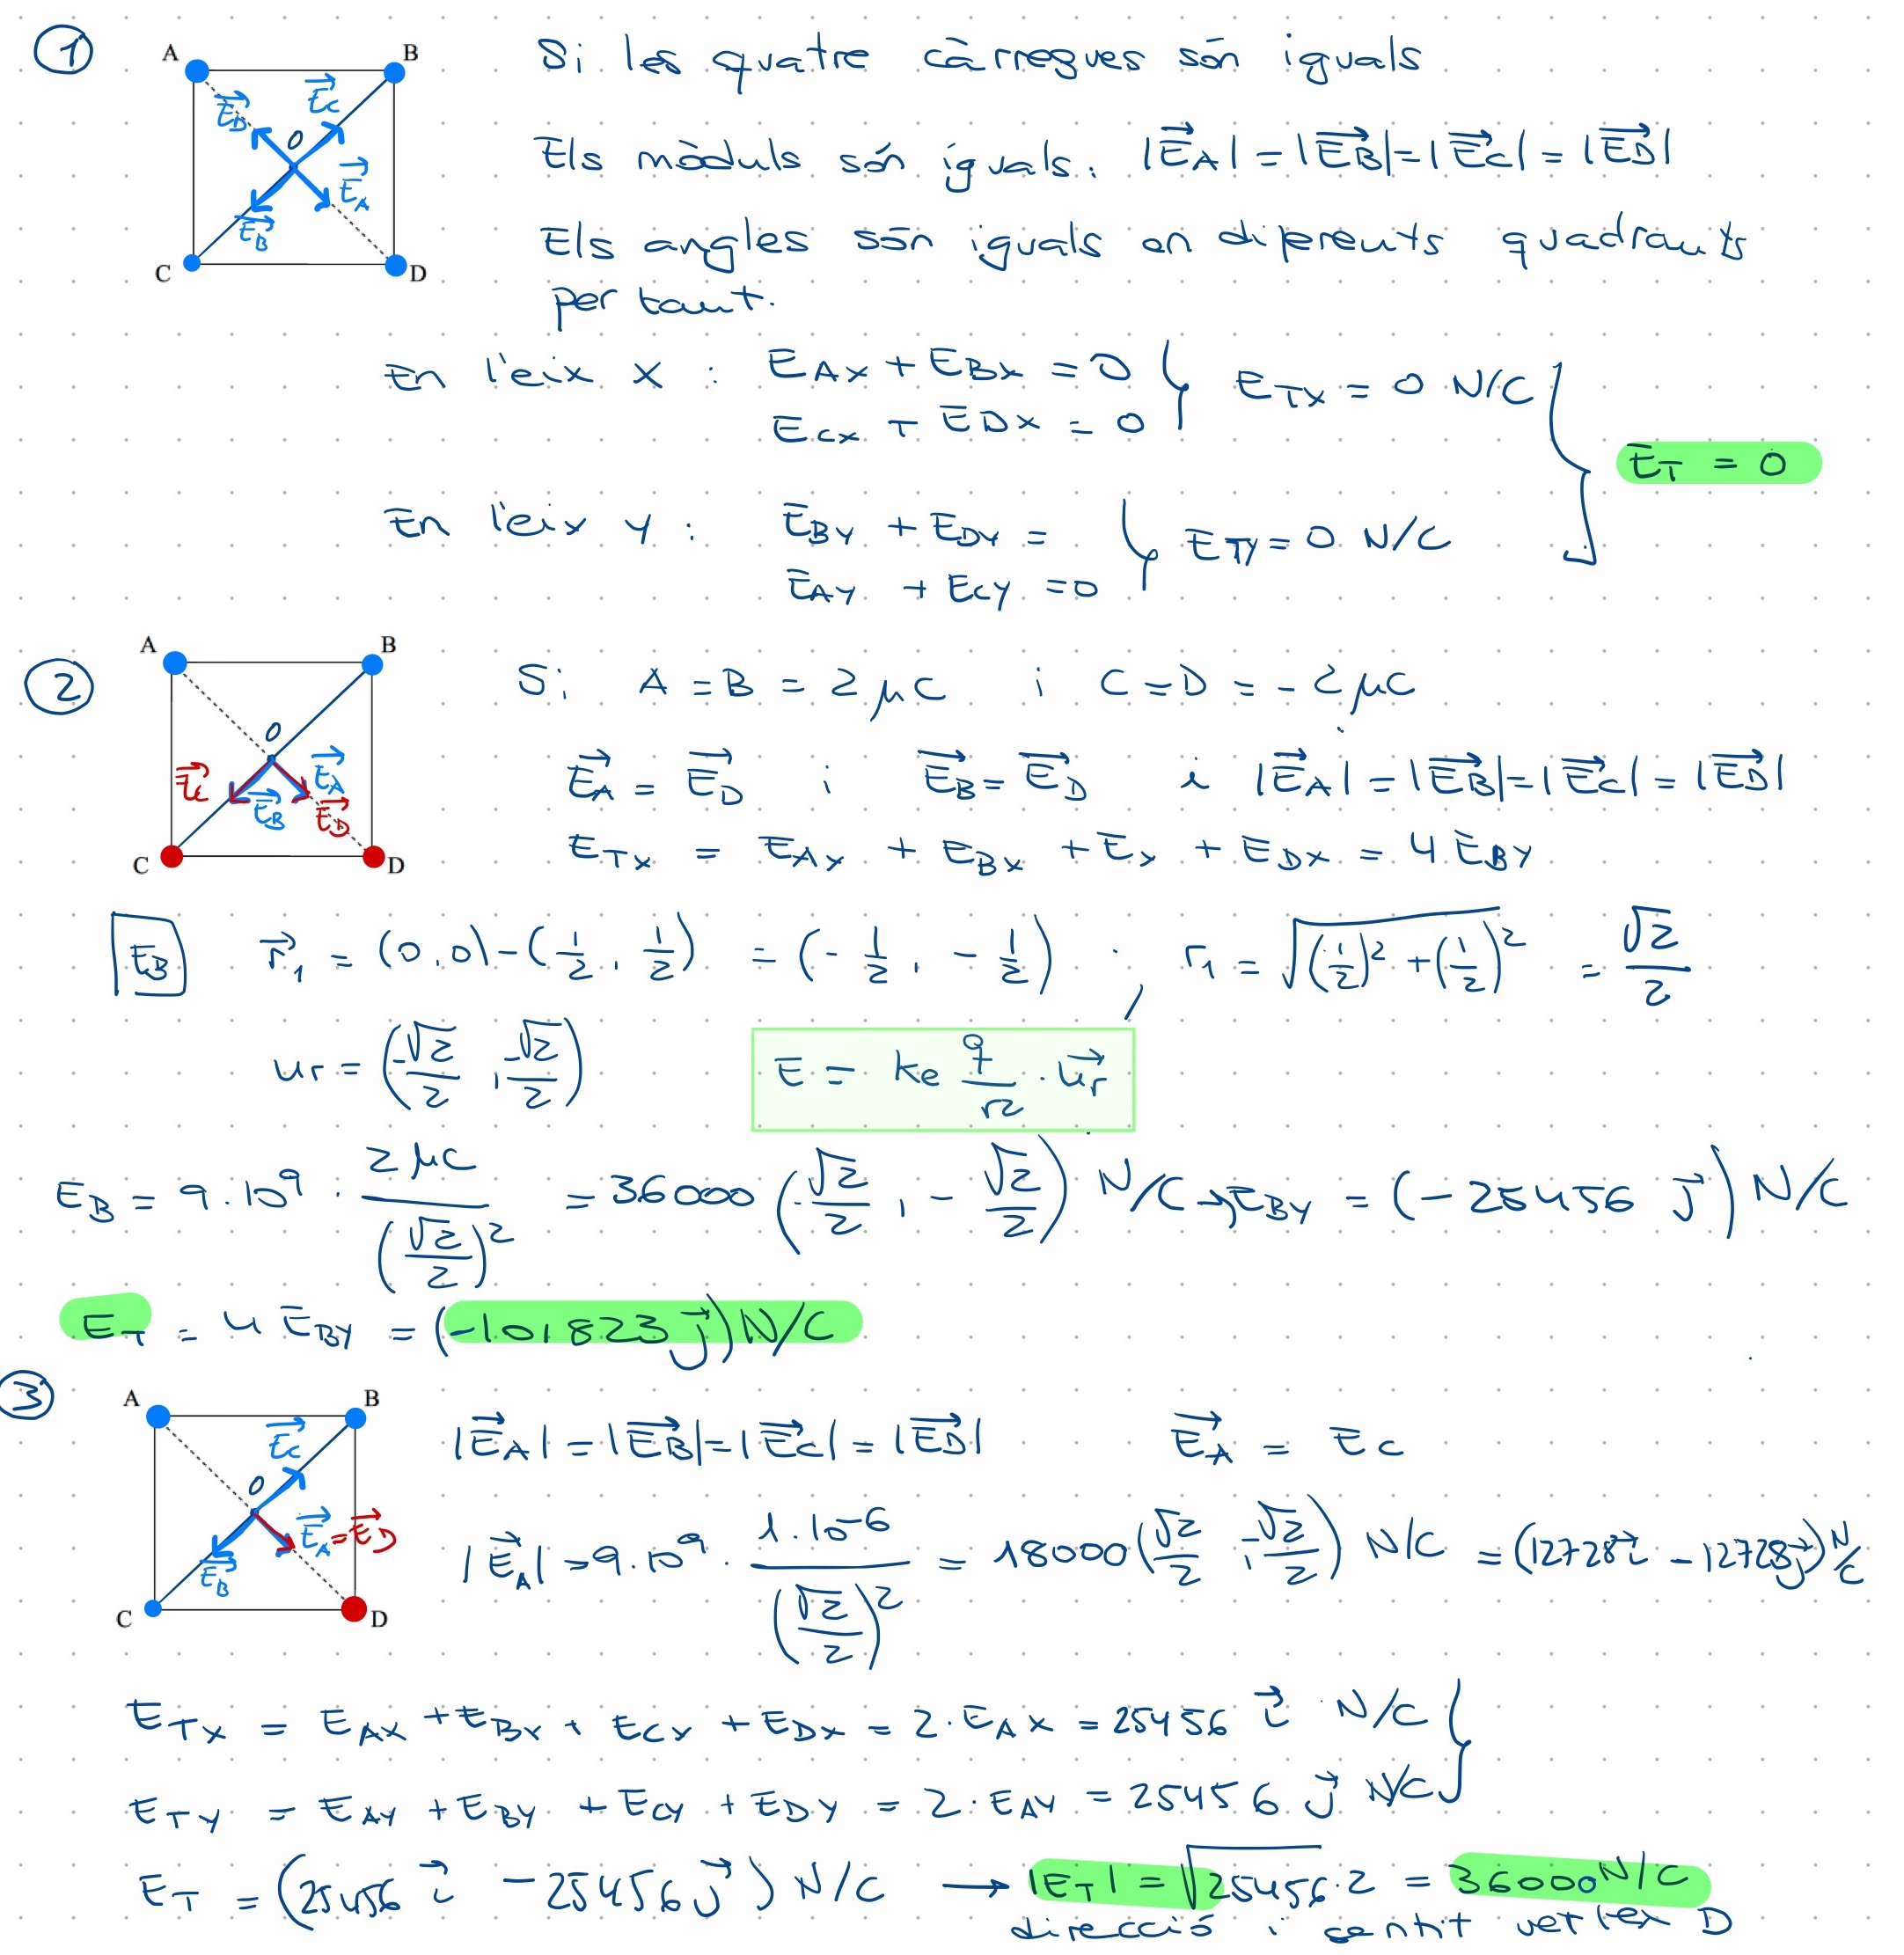 1
A B
Si les quatre càrregues són iguals
E⃗D E⃗C
O
Els mòduls són iguals. |E⃗A| = |E⃗B| = |E⃗C| = |E⃗D|
E⃗A
E⃗B
Els angles són iguals en diferents quadrants
C D
per tant.
En l'eix X : EAX + EBX = 0
ECX + EDX = 0
ETX = 0 N/C
ET = 0
En l'eix Y : EBY + EDY =
EAY + ECY = 0
ETY = 0 N/C
2
A B
Si A = B = 2 μC i C = D = -2 μC
O
E⃗C E⃗B E⃗A E⃗D
E⃗A = E⃗D i E⃗B = E⃗D i |E⃗A| = |E⃗B| = |E⃗C| = |E⃗D|
C D
ETX = EAX + EBX + EX + EDX = 4 EBY
EB r⃗1 = (0,0) - (1/2, 1/2) = (-1/2, -1/2) ; r1 = √(1/2)² + (1/2)² = √2/2
ur = (-√2/2, -√2/2) E = ke q/r2 · u⃗r
EB = 9·10⁹ · 2 μC/(√2/2)² = 36000 (-√2/2, -√2/2) N/C → EBY = (-25456 j⃗) N/C
ET = 4 EBY = (-101823 j⃗) N/C
3
A B
E⃗C
O
E⃗A = E⃗D
E⃗B
C D
|E⃗A| = |E⃗B| = |E⃗C| = |E⃗D| E⃗A = EC
|E⃗A| = 9·10⁹ · 1·10⁻⁶/(√2/2)² = 18000 (√2/2, -√2/2) N/C = (12728 i⃗ - 12728 j⃗) N/C
ETX = EAX + EBX + ECX + EDX = 2·EAX = 25456 i⃗ N/C
ETY = EAY + EBY + ECY + EDY = 2·EAY = 25456 j⃗ N/C
ET = (25456 i⃗ - 25456 j⃗) N/C → |ET| = √25456·2 = 36000 N/C
direcció i sentit vertex D